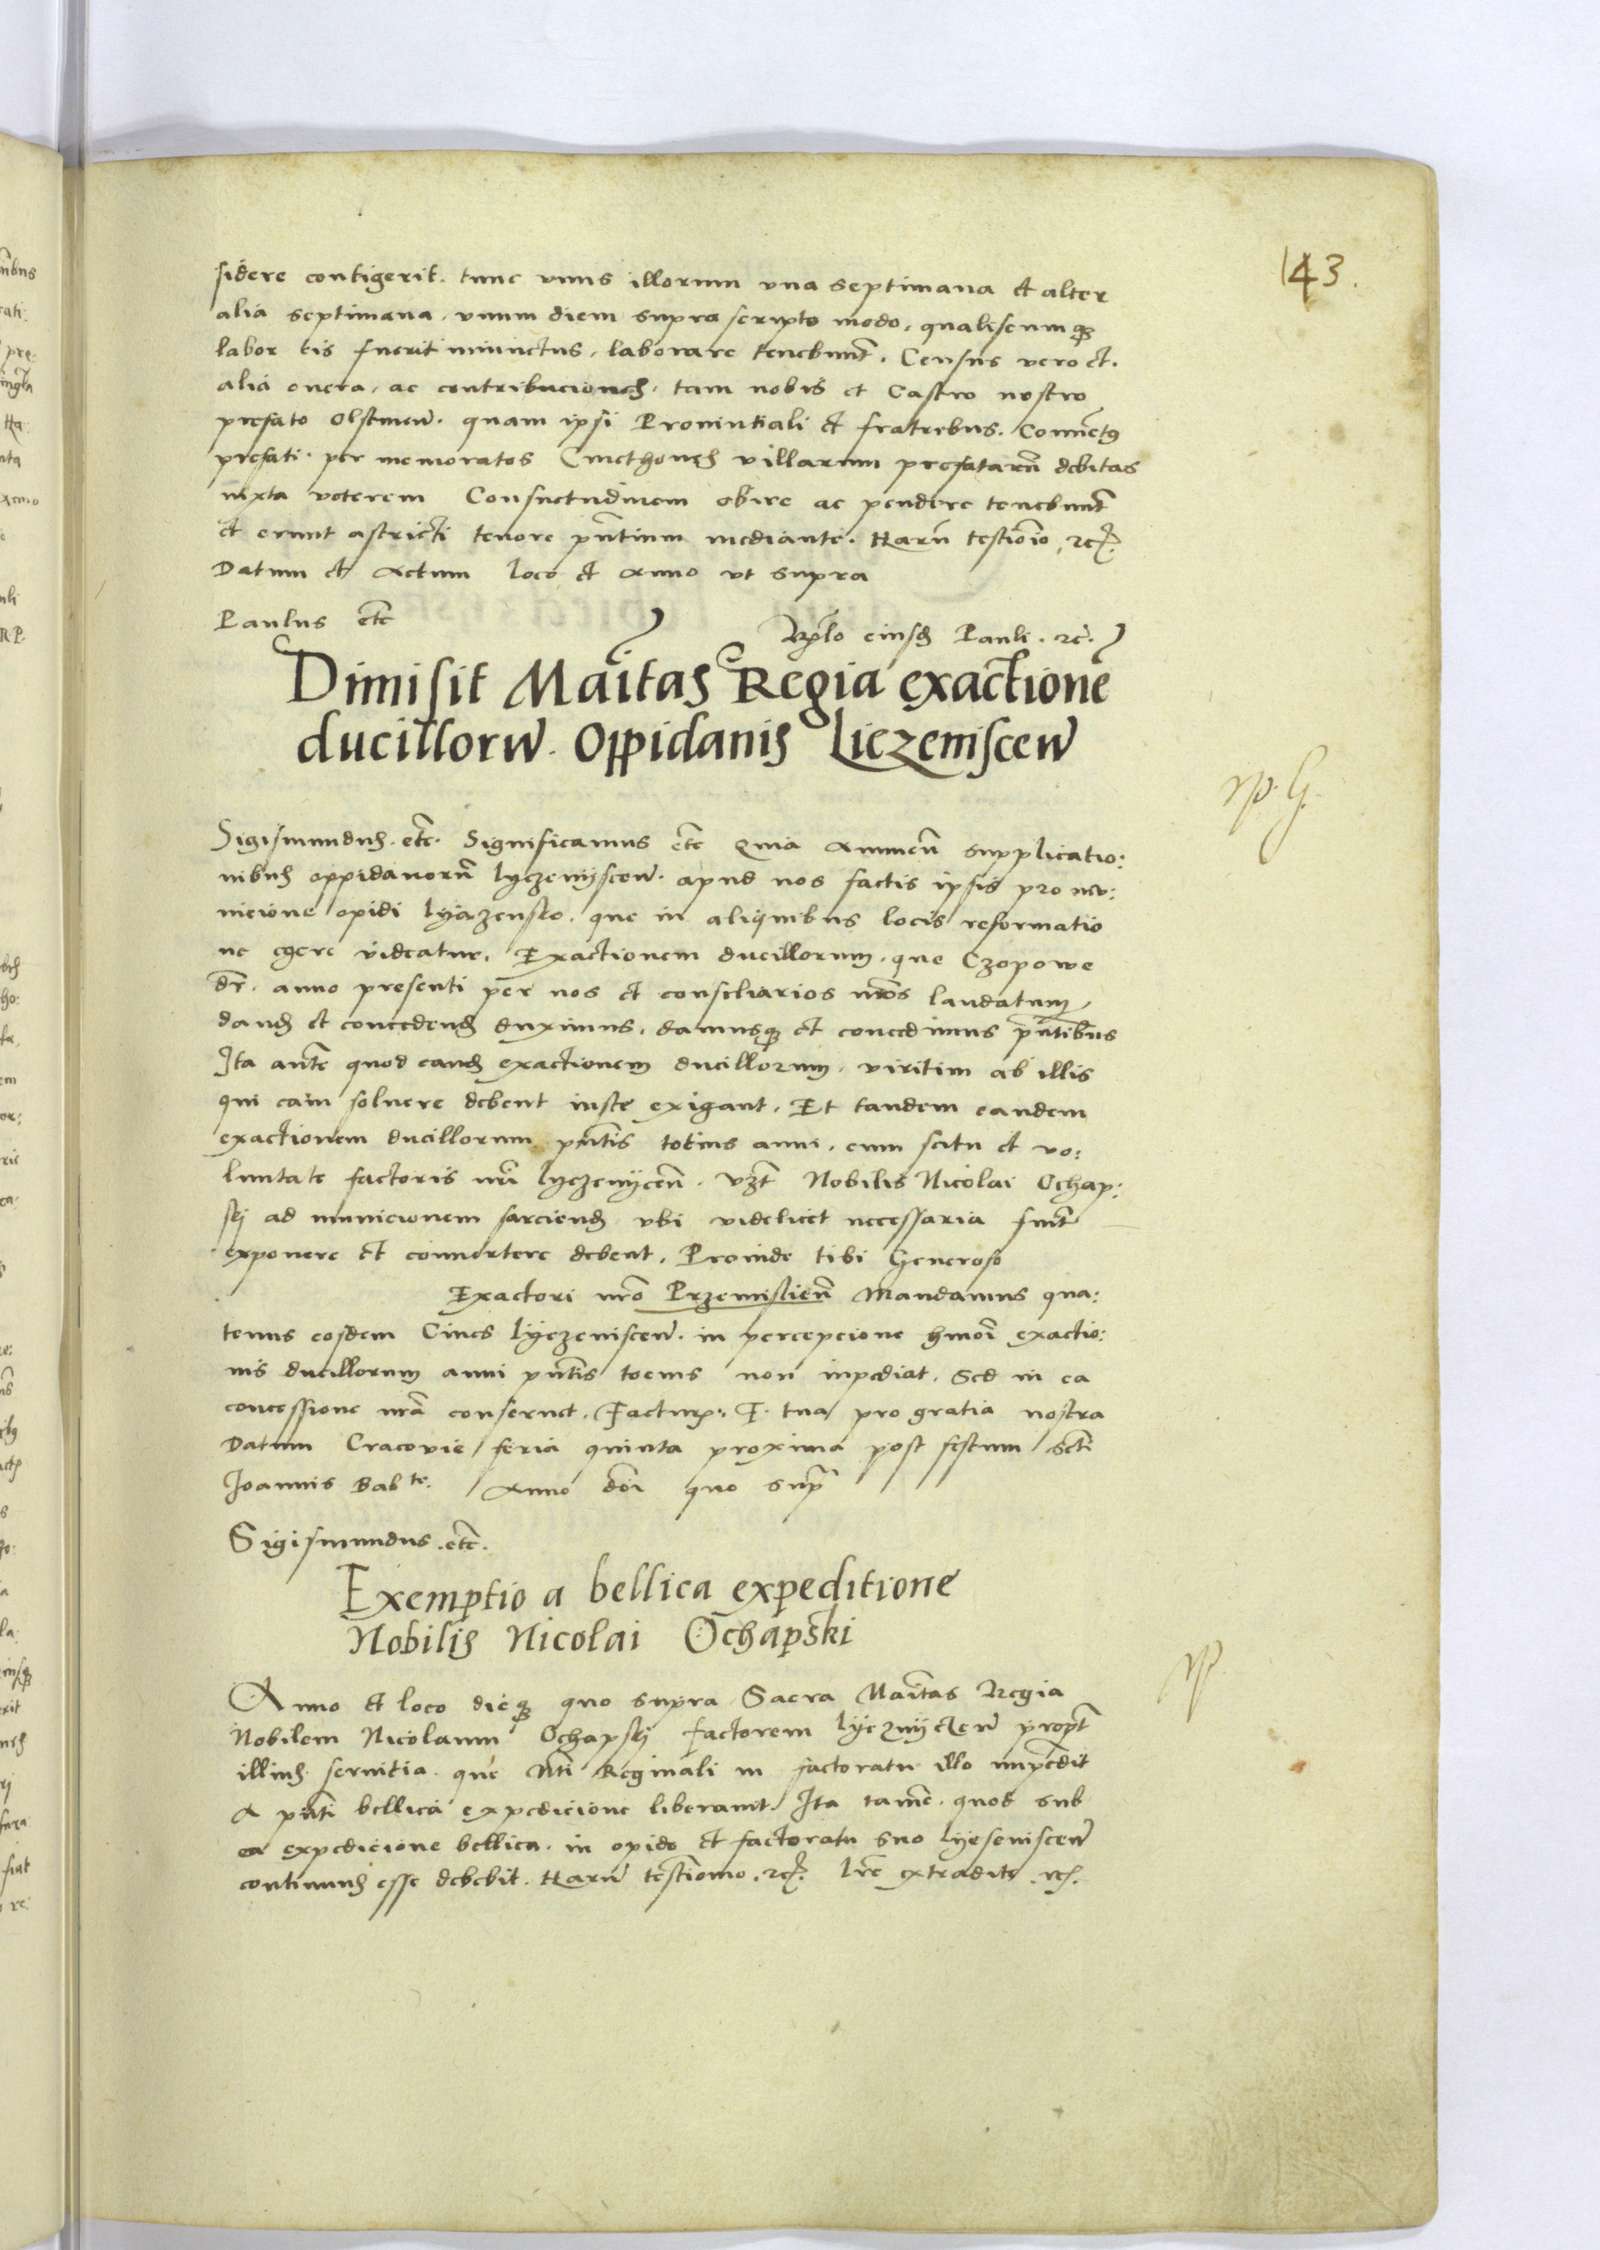 143.
sidere contigerit. tunc unus illorum una septimana et alter
alia septimana. unum diem supra scripto modo, qualiscumq3
labor eis fuerit iniunctus, laborare tenebunt. Census vero et.
alia onera, ac contribuciones. tam nobis et Castro nostro
prefato Olstinen. quam ipsi Provintiali et fratribus. Conuetus
prefati. per memoratos Cmethones villarum prefatarū debitas
iuxta veterem Consuetudinem obire ac pendere tenebunt
et erunt astricti tenore pntium mediante. Harū testimonio, etc.
Datum et Actum loco et Anno ut supra
Paulus etc
Rplo eiusd Pauli. etc.
Dimisit Maitas Regia exactione
ducillorū. Oppidanis Liczeniscen
Sigismundus. etc. Significamus etc Quia Annuen supplicatio:
nibus oppidanorū lyczenyscen. apud nos factis ipsis pro mu:
nicione opidi lyazensko. que in aliquibus locis reformatio
ne egere videatur. Exactionem ducillorum. que Czopowe
dr. anno presenti per nos et consiliarios nros laudatum,
dand et concedend duximus, damusq3 et concedimus pntibus
Ita ante quod eand exactionem ducillorum. viritim ab illis
qui eam soluere debent iuste exigant. Et tandem eandem
exactionem ducillorum pntis totius anni. cum scitu et vo:
luntate factoris nri lyczenycen. vzt Nobilis Nicolai Ochap:
sky ad municionem sarciend ubi videlicet necessaria fuit
exponere et conuertere debent. Proinde tibi Generoso
Exactori nro Przemislien Mandamus qua:
tenus eosdem Ciues lyczeniscen. in percepcione hmoi exactio:
nis ducillorum anni pntis tocius non inpediat. Sed in ea
concessione nra conseruet. Factur. F. tua pro gratia nostra
Datum Cracovie feria quinta proxima post festum Scti
Joannis Babte. Anno doi quo supra
Sigismundus. etc.
Exemptio a bellica expeditione
Nobilis Nicolai Ochapski
Anno et loco dieq3 quo supra Sacra Maitas Regia
Nobilem Nicolaum Ochapsky factorem lycznyczen propt
illius seruitia. que Mti Reginali in factoratu illo impedit
A pnti bellica expedicione liberauit. Ita tamē. quod sub
ea expedicione bellica. in opido et factoratu suo lyeseniscen
continuus esse debebit. Harū testimonio. etc. lre extradite. etc.